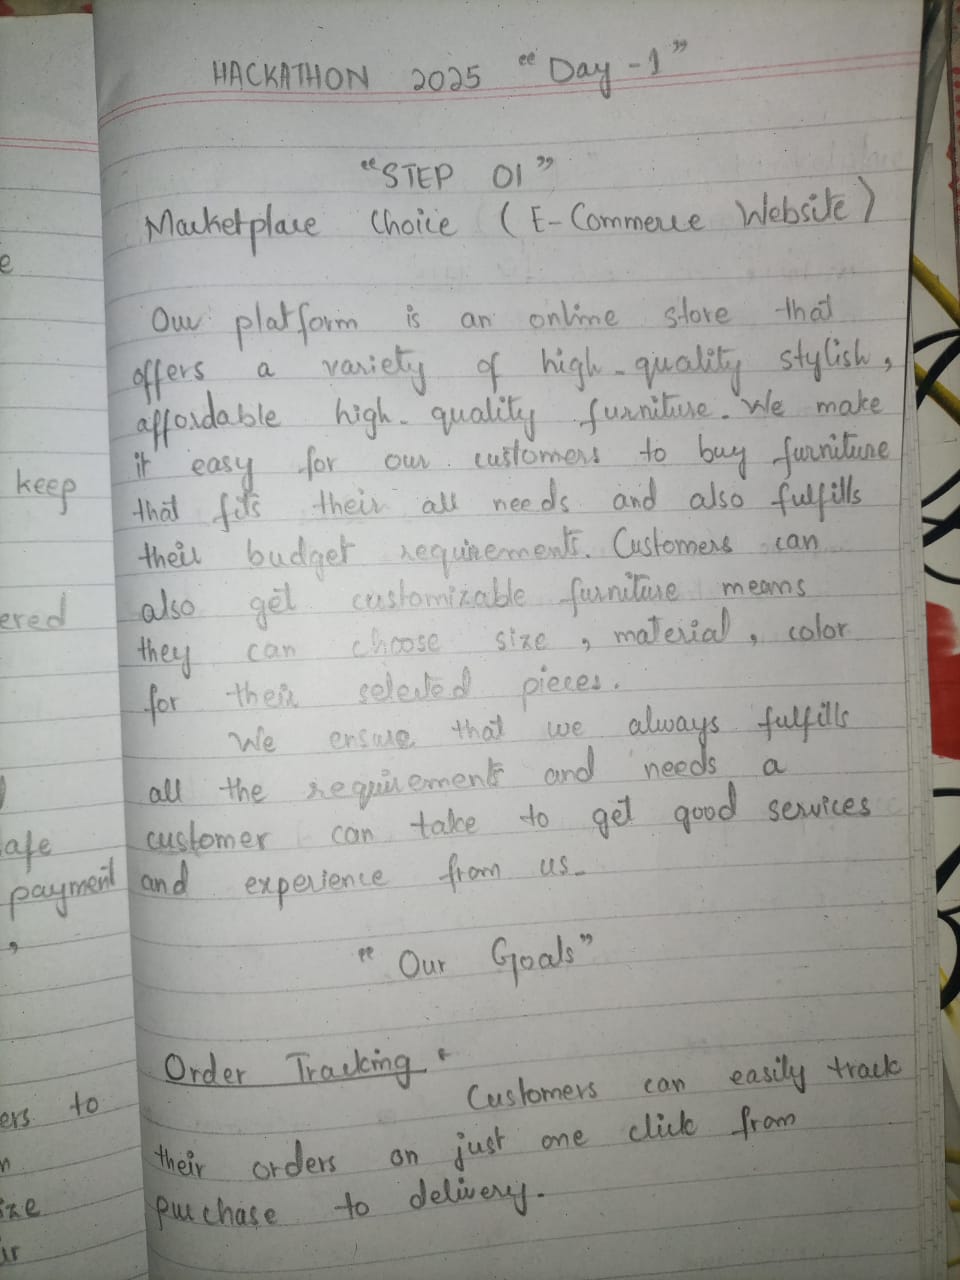 HACKATHON 2025 "Day-1"
"STEP 01"
Marketplace Choice (E-Commerce Website)
Our platform is an online store that
offers a variety of high-quality stylish,
affordable high-quality furniture. We make
it easy for our customers to buy furniture
that fits their all needs and also fulfills
their budget requirements. Customers can
also get customizable furniture means
they can choose size, material, color
for their selected pieces.
We ensure that we always fulfills
all the requirements and needs a
customer can take to get good services
and experience from us.
"Our Goals"
Order Tracking:
Customers can easily track
their orders on just one click from
purchase to delivery.
e
keep
ered
afe
payment
,
ers to
n
ize
ir